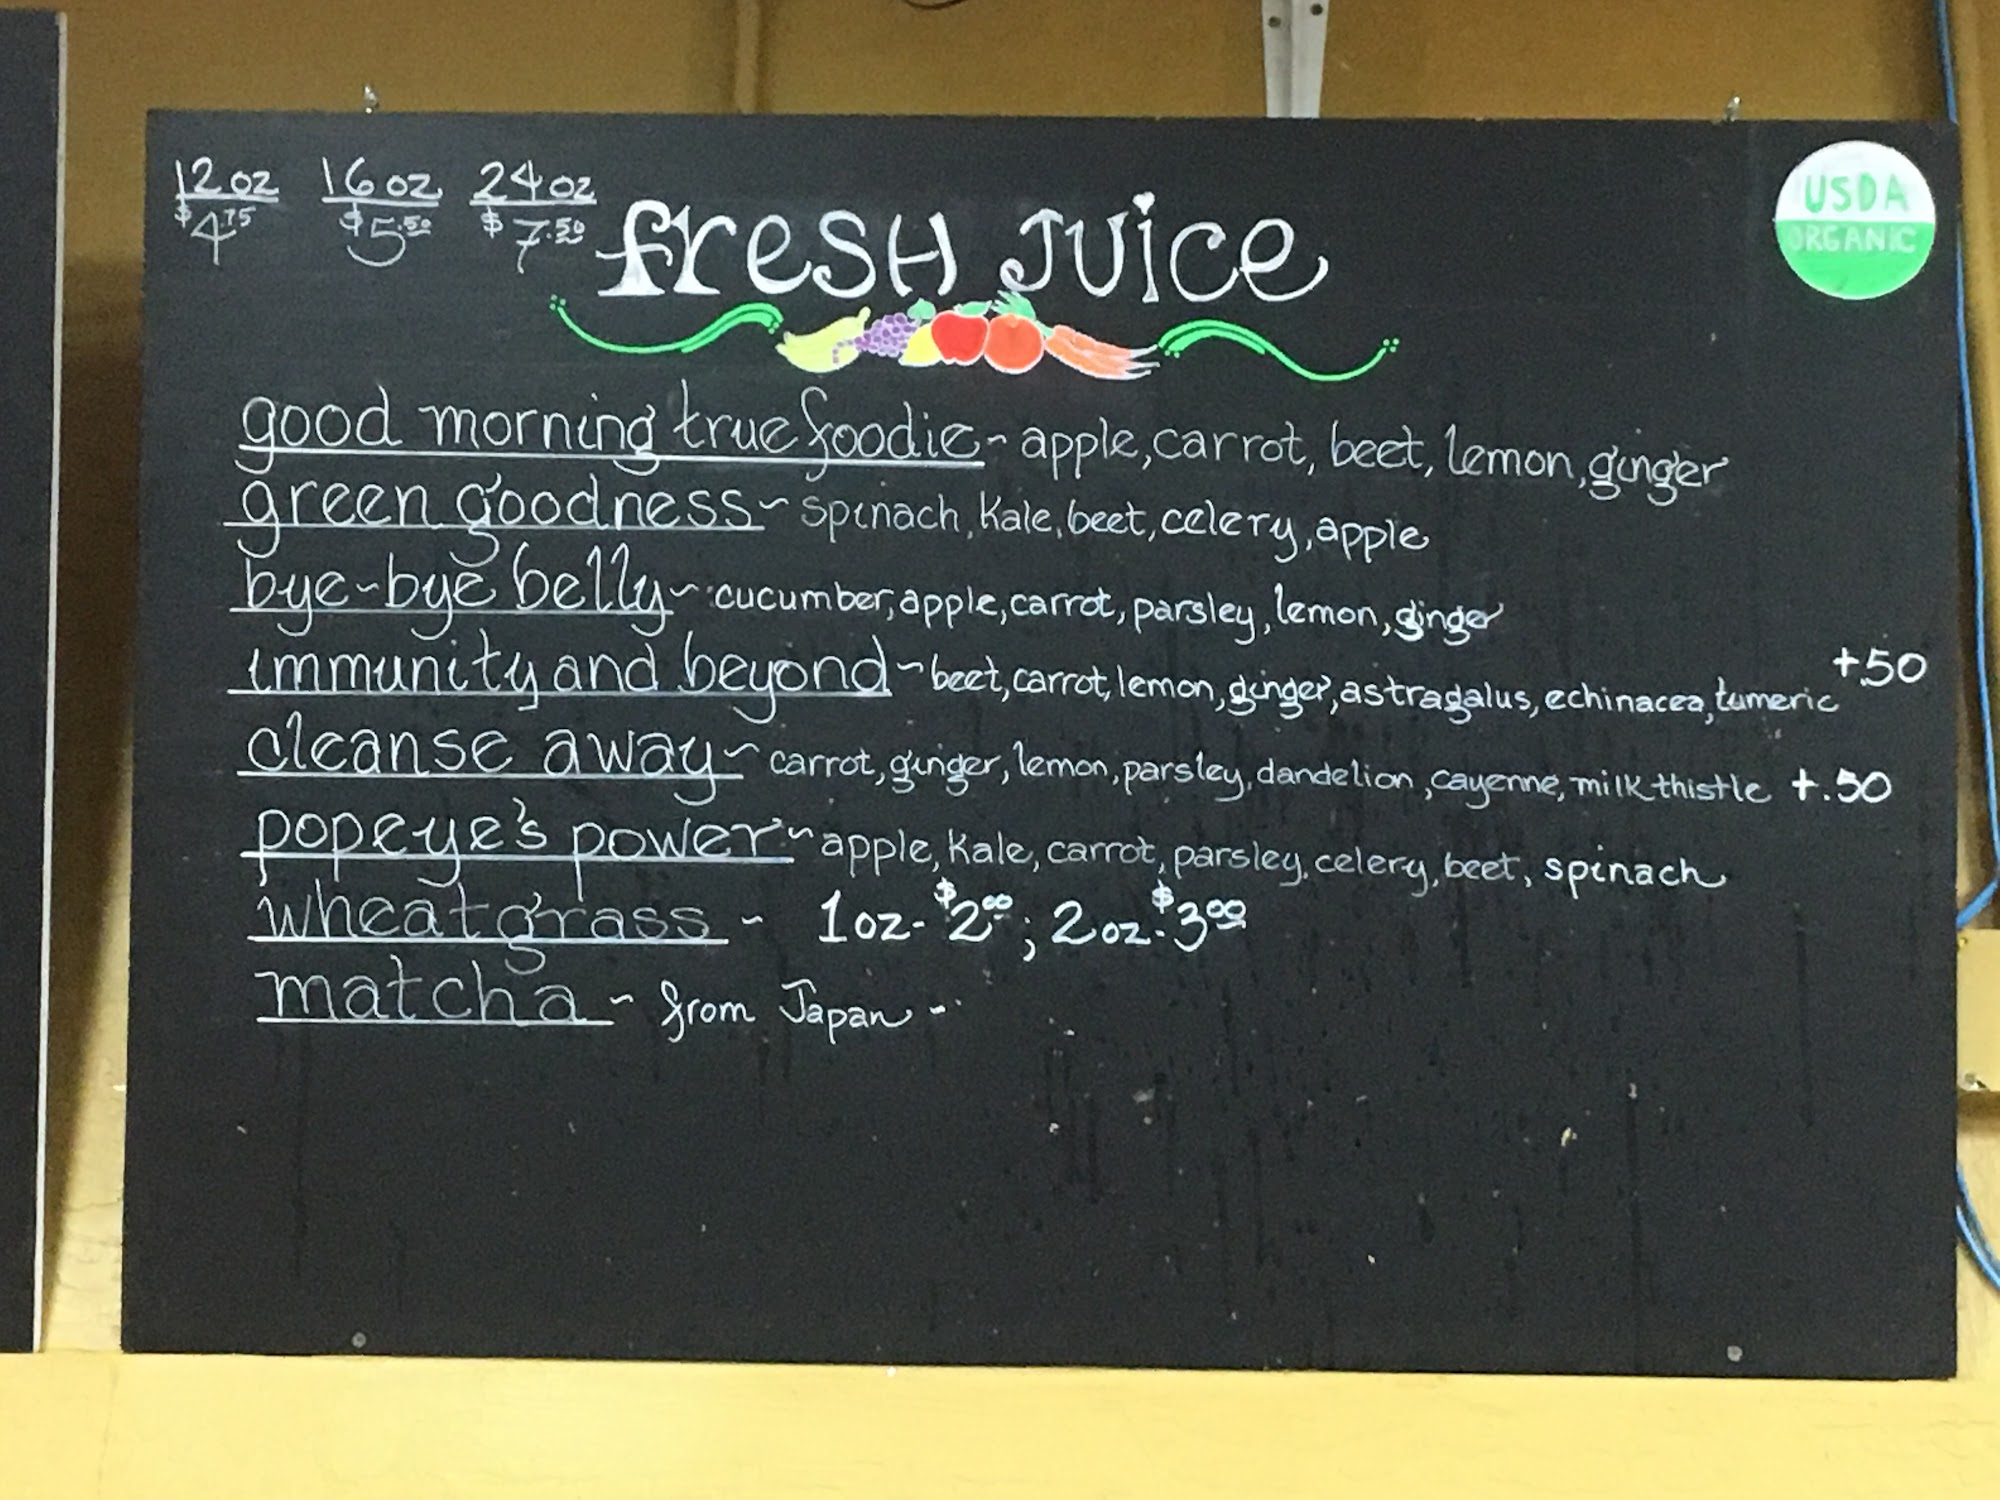 12oz 16oz 24oz
$4.75 $5.50 $7.50
fresh Juice
USDA
ORGANIC
good morning true foodie ~ apple, carrot, beet, lemon, ginger
green goodness ~ spinach, kale, beet, celery, apple
bye-bye belly ~ cucumber, apple, carrot, parsley, lemon, ginger
immunity and beyond ~ beet, carrot, lemon, ginger, astragalus, echinacea, tumeric +.50
cleanse away ~ carrot, ginger, lemon, parsley, dandelion, cayenne, milk thistle +.50
popeye's power ~ apple, kale, carrot, parsley, celery, beet, spinach
wheatgrass ~ 1oz- $2.00; 2oz- $3.00
matcha ~ from Japan ~